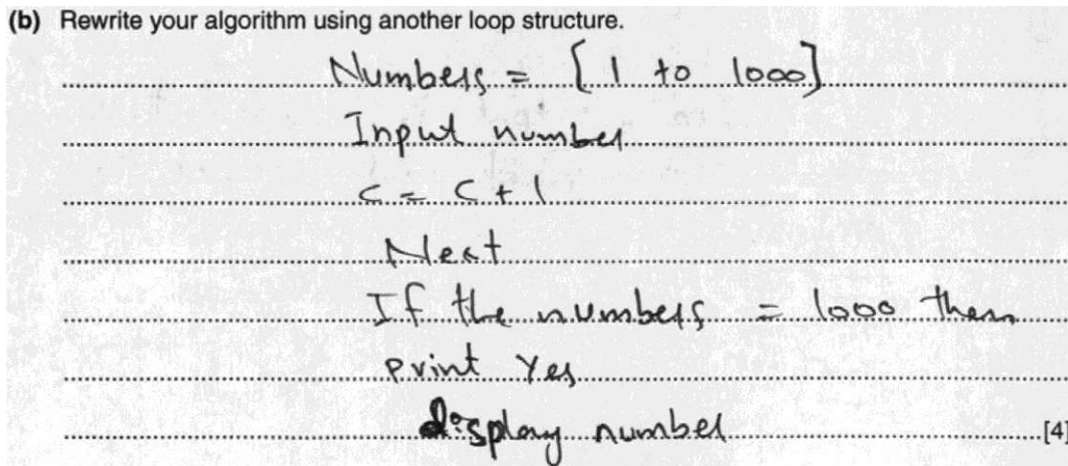 (b) Rewrite your algorithm using another loop structure.
Numbers = [1 to 1000]
Input number
c = c + 1
Next
If the numbers = 1000 then
print Yes
display number [4]